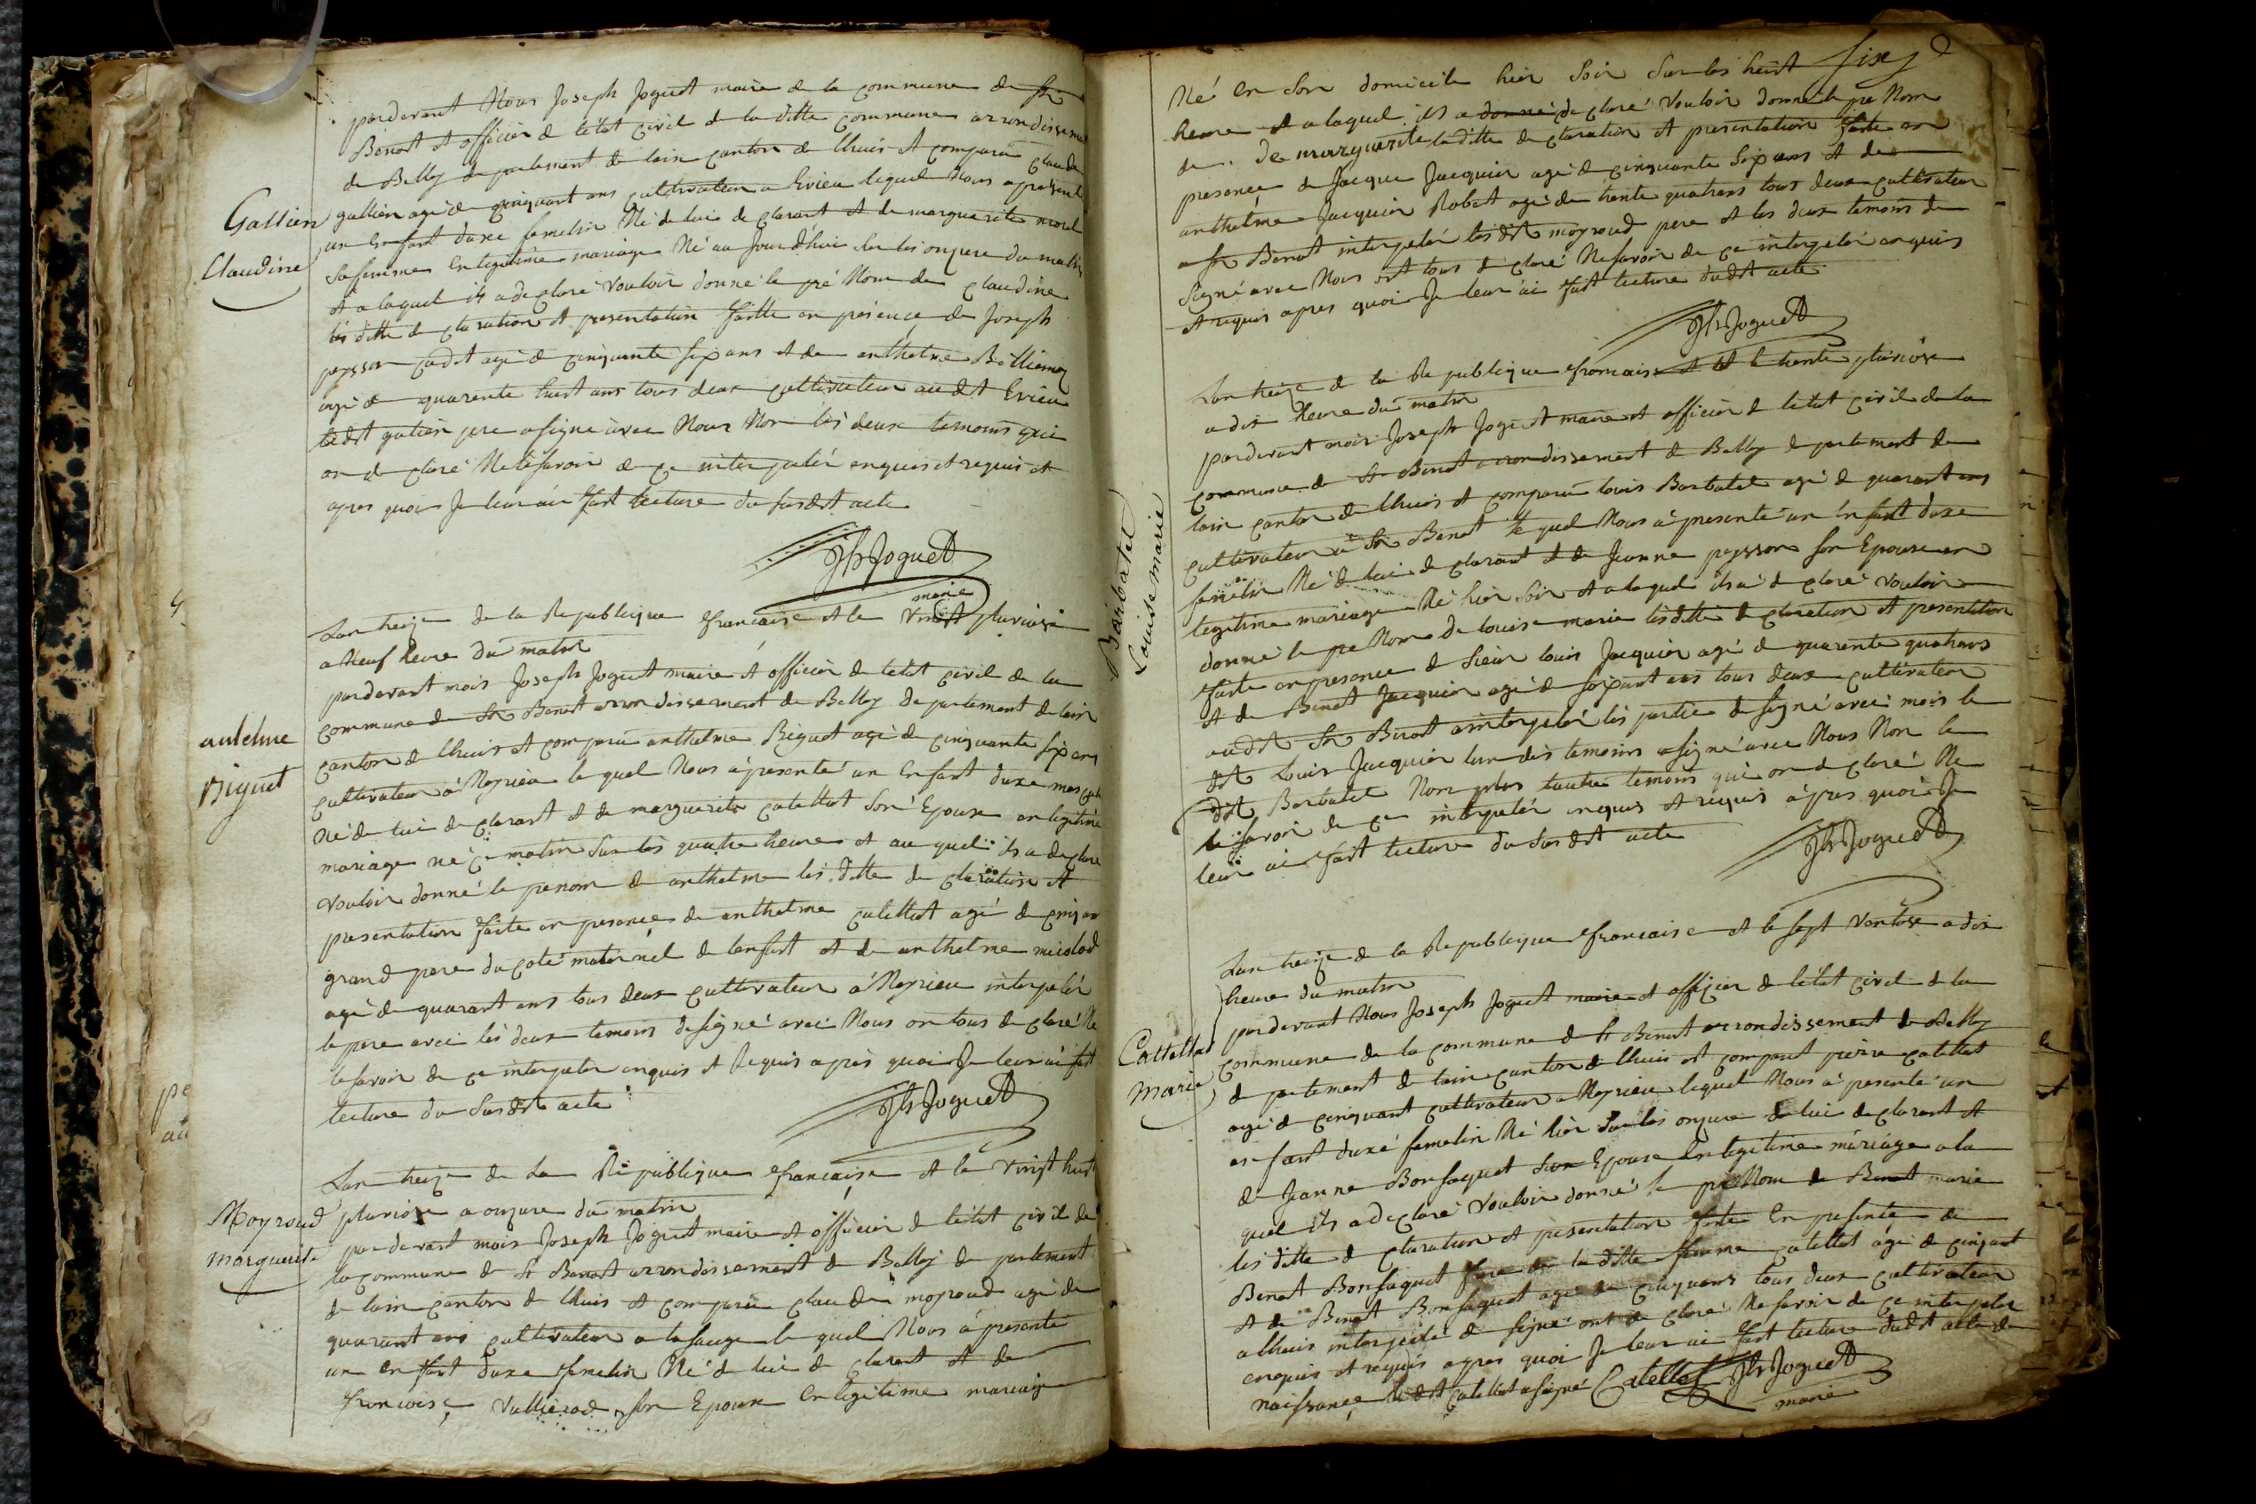 pardevant Nous Joseph Joguet maire de la commune de St
Benoit et officier de létat civil de la ditte commune arrondissement
de Belley departement de lain canton de lhuis et comparu claude
Gallien
Claudine
gallien agé de cinquant ans cultivateur a Evieu lequel Nous a presenté
un Enfant duxe femelin Né de lui de clarant et de marguerite morel
sa femme En legitime mariage Né au Jourdhui sur les onzeure du matin
et a laquel ils a declaré vouloir donné le pré Nom de claudine
les ditte de claration et presentation faitte en présence de Joseph
peysson cadet agé de cinquante six ans et de anthelme Billiemaz
agé de quarente huit ans tous deux cultivateur audit Evieu
ledit galien pere a signe avec Nous Non les deux temoins qui
on de claré Ne le savoir de ce interpelér enquis et requis et
apres quoi Je leur ai fait lecture du susdit acte
Jh Joguet
marie
Lan treize de la Republique francaise et le vingt pluviose
a Neuf heure du matin
pardevant mois Joseph Joguet maire et officier de letat civil de la
commune de St Benoit arrondissement de Belley departement de lain
anthelme
Riguet
canton de lhuis et comparu anthelme Riguet agé de cinquante six ans
cultivateur á Neyrieu le quel Nous á presenté un Enfant duxe masculin
né de lui de clarant et de marguerite catellat son Epouse en legitime
mariage né ce matin sur les quatre heure et au quel ils a declaré
vouloir donné le prenom de anthelme les ditte de claration et
presentation faite en presence de anthelme catellat agé de
grand pere du coté maternel de lenfant et de anthelme micolod
agé de quarant ans tous deux cultivateur á Neyrieu interpelér
le pere avec les deux temoins de signé avec Nous on tous de claré Ne
le savoir de ce interpeler enquis et Requis apres quoi Je leur ai fait
lecture du susdit acte
Jh Joguet
Lan treize de la Republique francaise et le vingt huit
Moyroud
Marguerite
pluviose a onzeure du matin
par devant mois Joseph Joguet maire et officier de létat civil de
la commune de St Benoit arrondissement de Belley de partement
de lain canton de lhuis et comparu claude moyroud agé de
quarant ans cultivateur a la sauge le quel Nous á presenté
un en fant duxe femelin Né de lui de clarant et de
francoise vallierod son Epouse En legitime mariage
six
Né En son domicile hier soir sur les heuit
heure et a laquel ils a donné de claré vouloir donné le pre Nom
de de marguerite la ditte de claration et presentation faite en
presence de Jacque Jacquier agé de cinquante six ans et de
anthelme Jacquier Robat agé de trente quatrans tous deux cultivateur
a St Benoit interpelér lesdit moyroud pere et les deux temoins de
signé avec Nous ont tous de claré Ne savoir de ce interpelér enquis
et requis apres quoi Je leur ai fait lecture dudit acte
Jh Joguet
Lan treize de la Republique francaise et le trente pluviose
a dix heure du matin
Barbatel
Louise marie
pardevant mois Joseph Joguet maire et officier de létat civil de la
commune de St Benoit arrondissement de Belley de partement de
lain canton de lhuis et comparu louis Barbatel agé de quarant ans
cultivateur á St Benoit le quel Nous á presenté un Enfant duxe
femelin Né de lui de clarant et de Jeanne peysson son Epouse en
legitime mariage Né hier soir et a laquel ils a de claré vouloir
donné le pre Nom de louise marie lesditte de claration et presentation
faite en presence de Sieur louis Jacquier agé de quarente quatrans
et de Benoit Jacquier agé de soixant ans tous deux cultivateur
audit St Benoit a interpelér les partie de signé avec mois le
dit Louis Jacquier lun des temoins a signé avec Nous Non le
dit Barbatel Non plus lautre temoins qui on de claré Ne
le savoir de ce interpelér enquis et requis ápres quoi Je
leur ai fait lecture du susdit acte
Jh Joguet
Lan treize de la Republique francaise et le sept vantose a dix
heure du matin
Catellat
Marie
pardevant Nous Joseph Joguet maire et officier de létat civil de la
commune de la commune de St Benoit arrondissement de Belley
de partement de lain canton de lhuis et comparut pierre catellat
agé de cinquant cultivateur a Neyrieu lequel Nous á presenté un
en fant duxé femelin Né hier sur les onzeure de lui declarant et
de Jeanne Bonfaquet son Epouse En legitime máriage a la
quel ils a declaré vouloir donné le pre Nom de Benoit marie
les ditte de claration et presentation faite En presente de
Benoit Bonfaquet de la ditte femme catellat agé de cinqant
et de Benoit Bonfaquet agé de tous deux cultivateur
a lhuis interpelér de signé ont de claré Ne savoir de ce interpelér
enquis et requis apres quoi Je leur ai fait lecture dudit acte de
naissance ledit catellat a signé Catellat Jh Joguet
marie